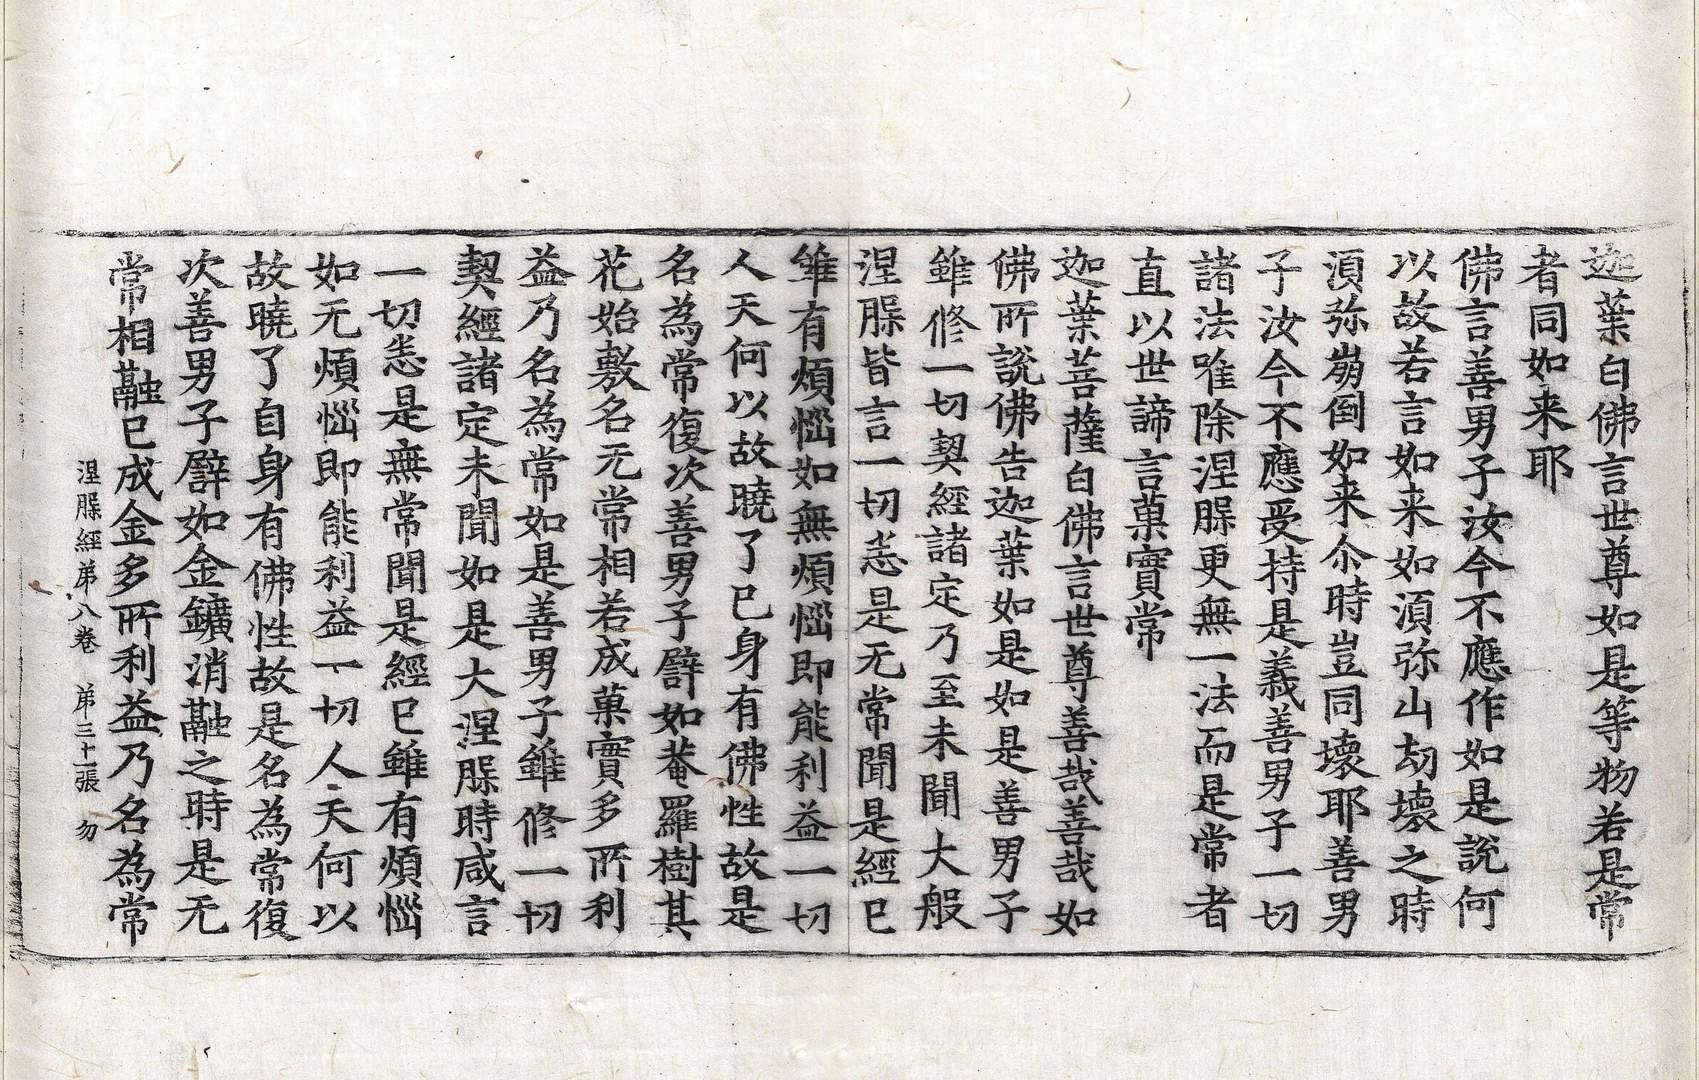 迦葉白佛言世尊如是等物若是常
者同如来耶
佛言善男子汝今不應作如是說何
以故若言如来如湏弥山劫壊之時
湏弥崩倒如来尒時豈同壊耶善男
子汝今不應受持是義善男子一切
諸法唯除涅槃更無一法而是常者
直以世諦言菓實常
迦葉菩薩白佛言世尊善哉善哉如
佛所說佛告迦葉如是如是善男子
雖修一切契經諸定乃至未聞大般
涅槃皆言一切悉是无常聞是經已
雖有煩惱如無煩惱即能利益一切
人天何以故曉了已身有佛性故是
名為常復次善男子譬如菴羅樹其
花始敷名无常相若成菓實多所利
益乃名為常如是善男子雖修一切
契經諸定未聞如是大涅槃時咸言
一切悉是無常聞是經已雖有煩惱
如无煩惱即能利益一切人天何以
故曉了自身有佛性故是名為常復
次善男子譬如金鑛消融之時是无
常相融已成金多所利益乃名為常
涅槃經第八卷 第三十張 勿